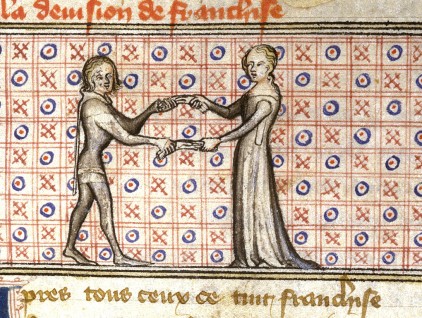 la deuision de franchise
pres tous ceux ce tint franchise